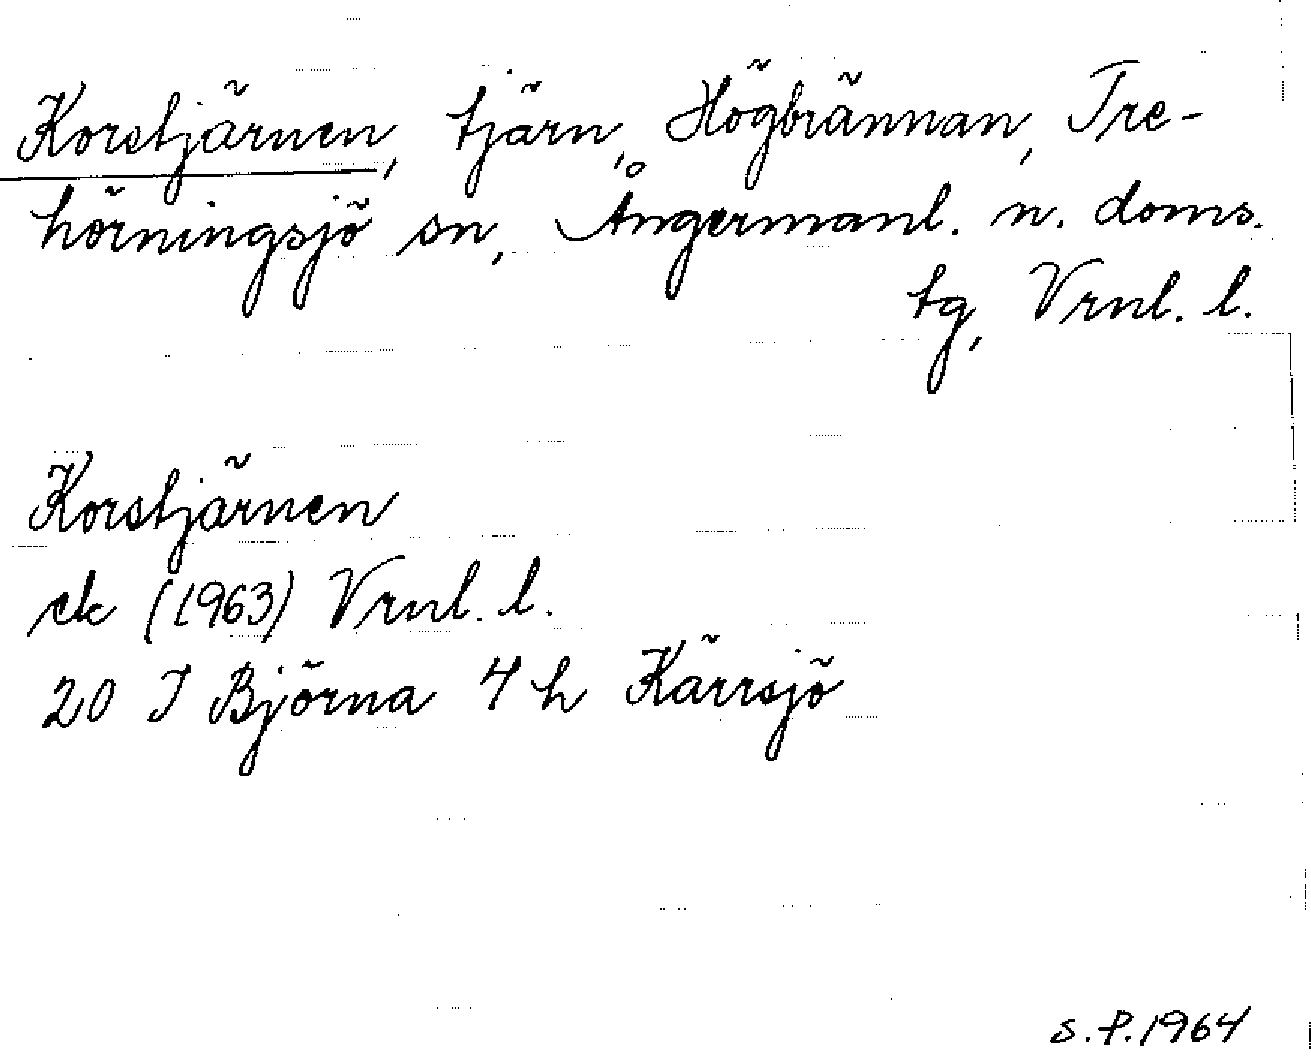 Korstjärnen, tjärn, Högbrännan, Tre-
hörningsjö sn, Ångermanl. n. doms.
tg, Vrnl. l.
Korstjärnen
ek (1963) Vrnl. l.
20 I Björna 4 h Kärrsjö
S.P. 1964